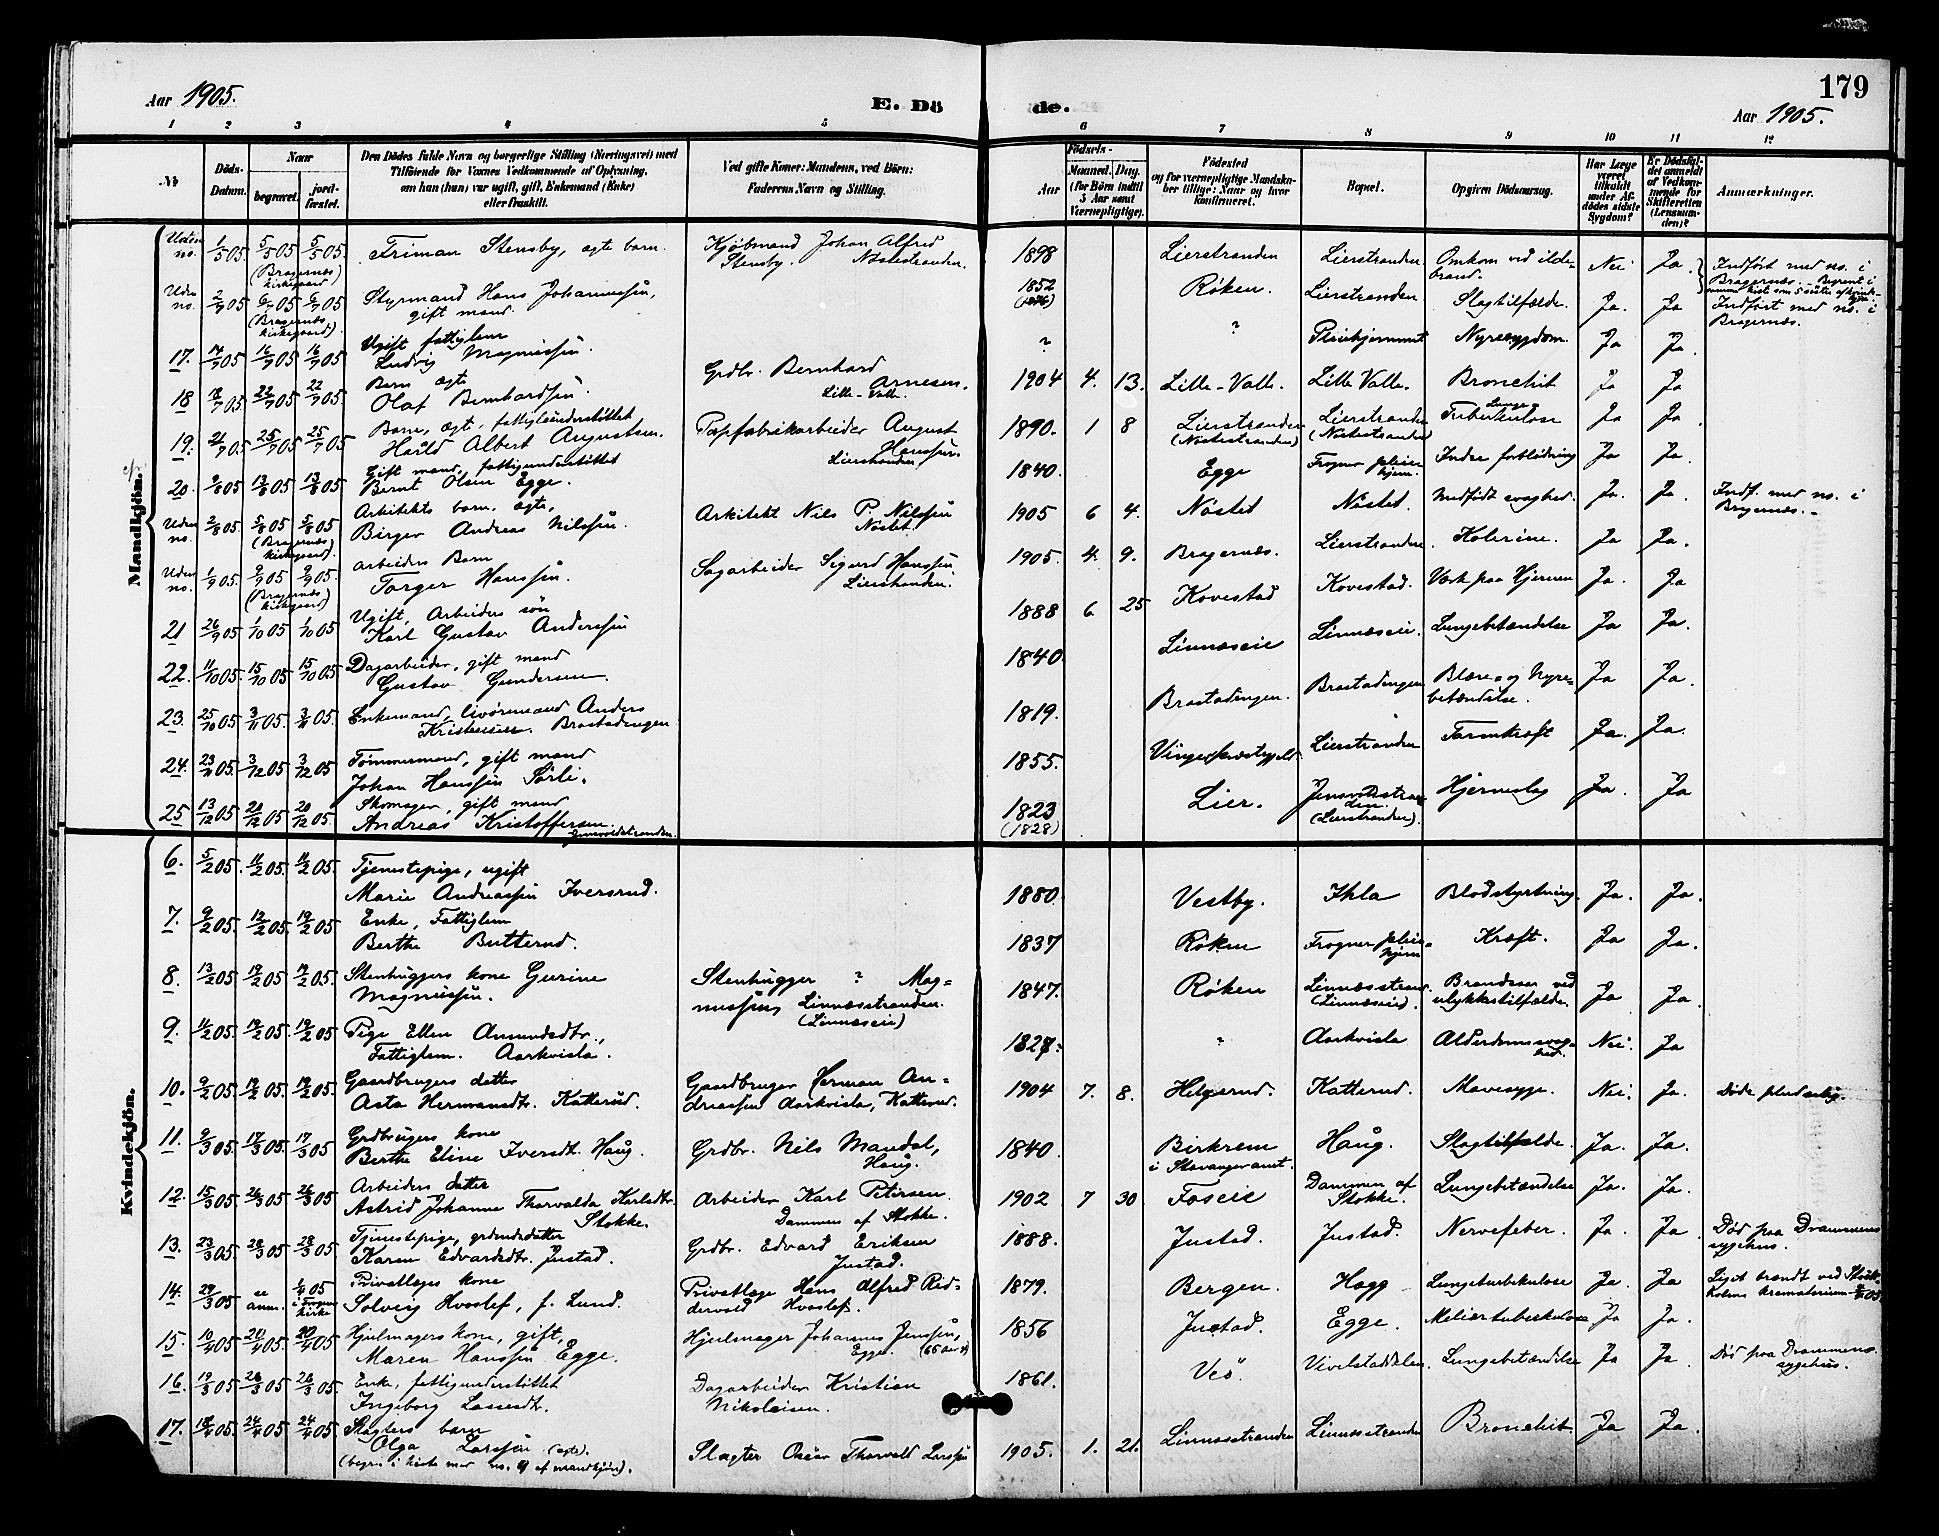 179
Aar 1905.
E. Dö
de.
Aar 1905.
1 2 3 4 5 6 7 8 9 10 11 12
№
Döds-
Datum.
Naar
begravet.
jord-
fæstet.
Den Dödes fulde Navn og borgerlige Stilling (Næringsvei) med
Tilföiende for Voxnes Vedkommende af Oplysning,
om han (hun) var ugift, gift, Enkemand (Enke)
eller fraskilt.
Ved gifte Koner: Mandens, ved Börn:
Faderens Navn og Stilling.
Födsels-
Aar
Maaned. Dag.
(for Börn indtil
5 Aar samt
Værnepligtige).
Födested
og for værnepligtige Mandskaber tillige: Naar og hvor
konfirmeret.
Bopæl.
Opgiven Dödsaarsag.
Har Læge
været
tilkaldt
under Afdödes sidste
Sygdom?
Er Dödsfaldet anmeldt
af Vedkommende for
Skifteretten
(Lensmanden)?
Anmærkninger.
Mandkjön.
Uden no. 1/5 05. 5/5 05 5/5 05. Friman Stensby, ægte barn. Kjøbmand Johan Alfred 1898 Lierstranden Lierstranden Omkom ved ilde- Nei Ja. Indført med no. i
(Bragernæs kirkegaard) Stensby. Nøstestranden. brand. Bragernæs.
Uden no. 2/7 05 6/7 05 6/7 05 Styrmand Hans Johannessen, 1852 Røken. Lierstranden Slagtilfælde. Ja. Ja Indført med no. i
(Bragernæs kirkegaard). gift mand. Bragernæs.
Ugift fattiglem ? ? Pleiehjemmet Nyresygdom. Ja Ja.
17. 16/7 05 16/7 05 Ludvig Magnussen.
Barn ægte Grdbr. Bernhard 1904 4. 13. Lille-Valle. Lille Valle. Bronchit Ja Ja.
18 22/7 05 22/7 05 Olaf Bernhardsen. Arnesen. Lille-Valle.
Barn, ægt., fattigunderstøttet Papfabrikarbeider August 1890. 1 8 Lierstranden Lierstranden Lunge- Ja Ja.
19. 21/7 05 25/7 05 25/7 05 Harald Albert Augustsen. Hanssen. Lierstranden (Nøstestranden) (Nøstestranden) Tuberkulose
Gift mand, fattigunderstøttet 1840. Egge Frogner pleie- Indre forblødning Ja Ja.
20. 9/8 05 13/8 05 13/8 05 Bernt Olsen Egge. hjem.
Arkitekts barn, ægte, Arkitekt Nils P. Nilssen 1905 6 4. Nøsted Nøsted. Medfødt svaghed. Ja. Ja. Indf. med no. i
Uden no. 2/8 05 5/8 05 5/8 05 Birger Andreas Nilssen. Nøsted. Bragernæs.
(Bragernæs kirkegaard).
arbeiders Barn Sagarbeider Sigurd Hanssen 1905. 4. 9. Bragernæs. Lierstranden. Kolerine. Ja Ja.
Uden no. 1/9 05. 9/9 05 9/9 05. Torger Hanssen. Lierstranden.
(Bragernæs kirkegaard)
Ugift, Arbeiders søn 1888 6. 25 Kovestad Kovestad. Værk paa Hjernen Ja. Ja
21 26/9 05 1/10 05 1/10 05 Karl Gustav Anderssen
22. 11/10 05. 15/10 05 15/10 05. Dagarbeider, gift mand 1840. Linnæseie Linnæseie. Lungebetændelse Ja Ja.
Gustav Gundersen.
23. 25/10 05 3/11 05. 3/11 05. Enkemand, livøremand Anders 1819. Brastadengen. Brastadengen Blære- og Nyre- Ja Ja.
Kristensen. Brastadengen betændelse.
24. 23/11 05. 3/12 05 3/12 05 Tømmermand, gift mand 1855. Vinger præstegjeld Lierstranden Tarmkræft Ja. Ja.
Johan Hanssen Sørli.
25 13/12 05 20/12 05 20/12 05 Skomager, gift mand 1823 Lier. Hjerneslag Ja. Ja
Andreas Kristoffersen. (1828) (Lierstranden).
Kvindekjön.
6. 5/2 05. 11/2 05. 11/2 05. Tjenestepige, ugift
Marie Andreassen Iversrud. 1880. Vestby. Ihla Blodstyrtning Ja. Ja.
7. 9/2 05. 19/2 05 Enke, Fattiglem
Berthe Butterud. 1837 Røken Frogner pleie-hjem Kræft. Ja Ja.
8. 13/2 05 19/2 05 19/2 05. Stenhuggers kone Gurine Stenhugger ? Mag- 1847. Røken Linnæsstrand. Brandsaar ved Ja Ja.
Magnussen. nussens Linnæsstranden. (Linnæseie) (Linnæseie). ulykkestilfælde.
9. 11/2 05. 19/2 05 19/2 05 Pige Ellen Amundsdtr., 1827. " Aarkvisla Alderdomssvag-hed. Nei. Ja
Fattiglem. Aarkvisla.
10. 9/2 05. 19/2 05 19/2 05. Gaardbrugers datter Gaardbruger Herman An- 1904 7. 8. Helgerud. Katterud. Mavesyge. Nei. Ja. Døde pludselig.
Asta Hermansdtr. Katterud. dreassen Aarkvisla, Katterud.
11. 9/3 05. 17/3 05. 17/3 05 Grdbrugers kone Grdbr. Nils Mandal, 1840. Birkrem Haug. Slagtilfælde. Ja. Ja.
Berthe Eline Iversdt. Haug. Haug. i Stavanger amt.
12. 15/3 05. 26/3 05 26/3 05 Arbeiders datter Arbeider Karl Petersen 1902 7 30 Foseie Dammen af Lungebetændelse Ja. Ja.
Astrid Johanne Thorvalda Karlsdtr. Stokke. Dammen af Stokke. Stokke.
13. 23/3 05. 28/3 05 28/3 05 Tjenestepige, grdmdsdatter Grdbr. Edvard Eriksen 1888. Justad. Justad. Nervefeber. Ja Ja. Død paa Drammens
Karen Edvardsdtr. Justad. Justad. sygehus.
14. 29/3 05 se anm. 1/4 05 i Frogner kirke Privatlæges kone Privatlæge Hans Alfred Rid- 1879. Bergen. Hagg Lungetuberkulose Ja. Ja Liget brændt ved Stok-
Solveig Hvoslef, f. Lund. dervold Hvoslef. holms krematorium
15. 10/4 05 20/4 05. 20/4 05 Hjulmagers kone, gift, Hjulmager Johannes Jenssen, 1856 Justad. Egge. Miliærtuberkulose Ja Ja.
Maren Hanssen Egge. Egge. (65 aar)
16. 19/3 05. 26/3 05 26/3 05. Enke, fattigunderstøttet Dagarbeider Kristian 1861. Ves. Vivelstaddalen. Lungebetændelse Ja Ja. Død paa Drammens
Ingeborg Lassesdtr. Nikolaisen. sygehus.
17. 24/4 05 24/4 05 Slagters barn
Olga Larssen (ægte). Slagter Oscar Thorvald Larssen 1905. 1. 21. Linnæsstranden Linnæsstranden Bronchit. Ja Ja.
(begr. i kiste med no. 9 af mandkjøn).